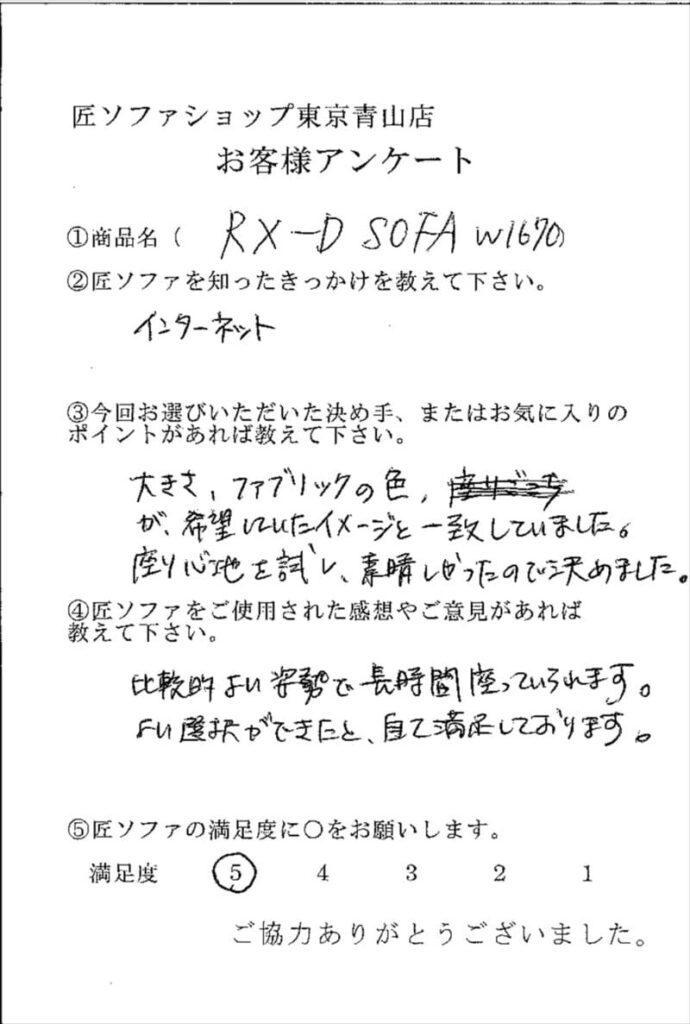 匠ソファショップ東京青山店
お客様アンケート
①商品名( RX-D SOFA W1670)
②匠ソファを知ったきっかけを教えて下さい。
インターネット
③今回お選びいただいた決め手、またはお気に入りの
ポイントがあれば教えて下さい。
大きさ、ファブリックの色、
が、希望していたイメージと一致していました。
座り心地を試し、素晴しかったので決めました。
④匠ソファをご使用された感想やご意見があれば
教えて下さい。
比較的よい姿勢で長時間座っていられます。
よい選択ができたと、満足しております。
⑤匠ソファの満足度に〇をお願いします。
満足度 5 4 3 2 1
ご協力ありがとうございました。